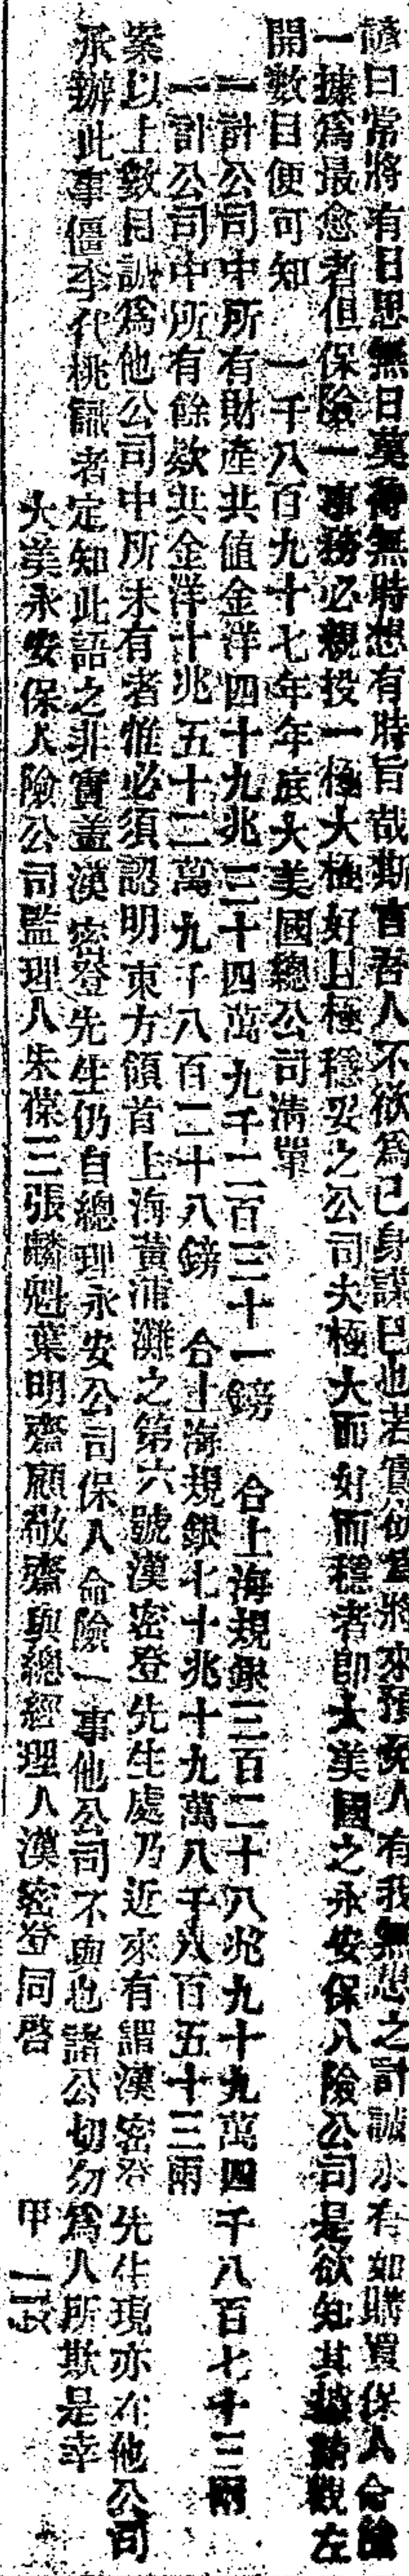 諺曰常將有日思無日莫待無時想有時旨哉斯言吾人不欲爲己身謀已也若實欲爲將來預免人有我無愁之計誠未有如購買保人命險
一據爲最愈者但保險一事務必親投一極大極好且極穩妥之公司夫極大而好而穩者即大美國之永安保人險公司是欲知其據請觀左
開數目便可知　一千八百九十七年年底大美國總公司清單
一計公司中所有財產共值金洋四十九兆三十四萬九千二百三十一鎊　合上海規銀三百二十八兆九十九萬四千八百七十三兩
一計公司中所有餘欵共金洋十兆五十二萬九千八百二十八鎊　合上海規銀七十兆十九萬八千八百五十三兩
案以上數目誠爲他公司中所未有者惟必須認明東方領首上海黃浦灘之第六號漢密登先生處乃近來有謂漢密登先生現亦在他公司
承辦此事僵李代桃識者定知此語之非實蓋漢密登先生仍自總理永安公司保人命險一事他公司不與也諸公切勿爲人所欺是幸
大美永安保人險公司監理人朱葆三張麟魁葉明齋顧敬齋與總經理人漢密登同啓　　甲